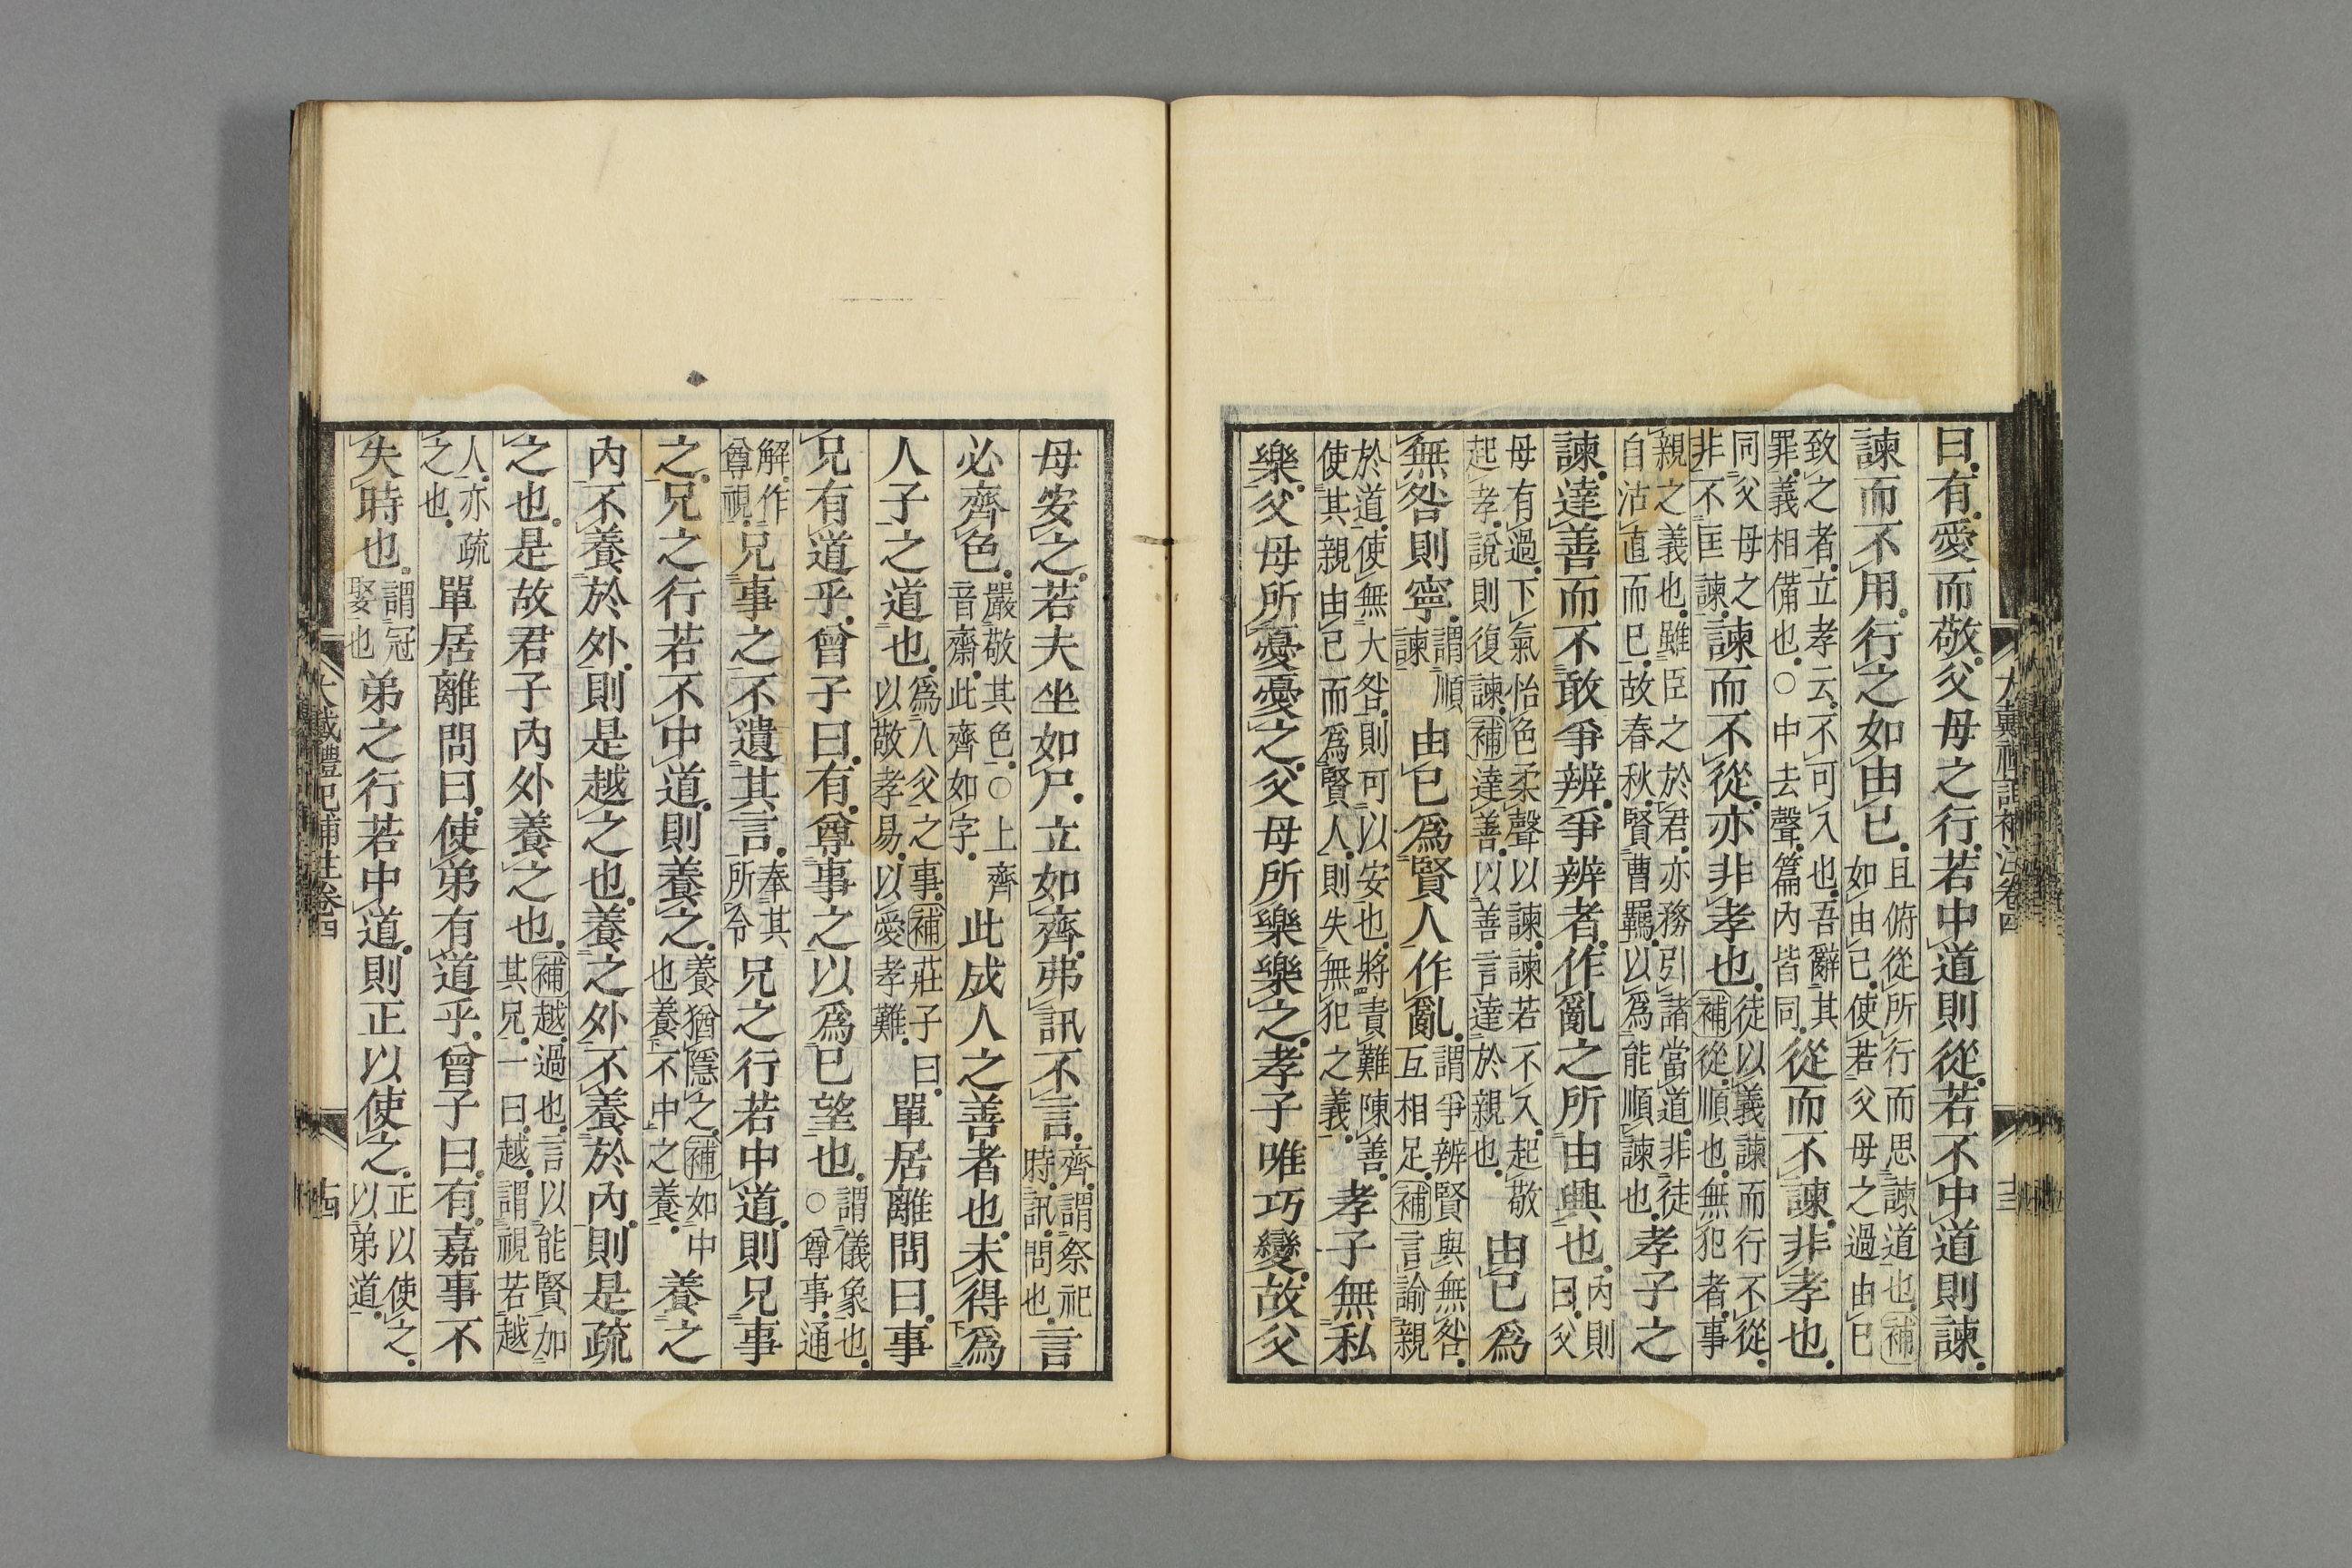 曰有愛而敬父母之行若中道則從若不中道則諫
諫而不用行之如由己且俯從所行而思諫道也補
如由己使若父母之過由已
致之者立孝云不可入也吾辭其
罪義相備也○中去聲篇內皆同從而不諫非孝也
同父母之
非不匡諫諫而不從亦非孝也徒以義諫而行不從
補從順也無犯者事
親之義也雖臣之於君亦務引諸當道非徒
自沽直而已故春秋賢曹羈以爲能順諫也孝子之
諫達善而不敢爭辨爭辨者作亂之所由興也內則
曰父
母有過下氣怡色柔聲以諫諫若不入起敬
起孝說則復諫補達善以善言達於親也由己爲
無咎則寧謂順
諫由己爲賢人作亂謂爭辨賢與無咎
互相足補言諭親
於道使無大咎則可以安也將責難陳善
使其親由己而爲賢人則失無犯之義孝子無私
樂父母所憂憂之父母所樂樂之孝子唯巧變故父
大戴禮記補注卷四
十三
母安之若夫坐如尸立如齊弗訊不言齊謂祭祀
時訊問也言
必齊色嚴敬其色○上齊
音齋此齊如字此成人之善者也未得爲
人子之道也爲人父之事補莊子曰
以敬孝易以愛孝難單居離問曰事
兄有道乎曾子曰有尊事之以爲己望也謂儀象也
○尊事通
解作
尊視兄事之不遺其言奉其
所令兄之行若中道則兄事
之兄之行若不中道則養之養猶隱之補如中
也養不中之養養之
內不養於外則是越之也養之外不養於內則是疏
之也是故君子內外養之也補越過也言以能賢加
其兄一曰越謂視若越
人亦疏
之也單居離問曰使弟有道乎曾子曰有嘉事不
失時也謂冠
娶也弟之行若中道則正以使之正以使之
以弟道
大戴禮記補注卷四
十四